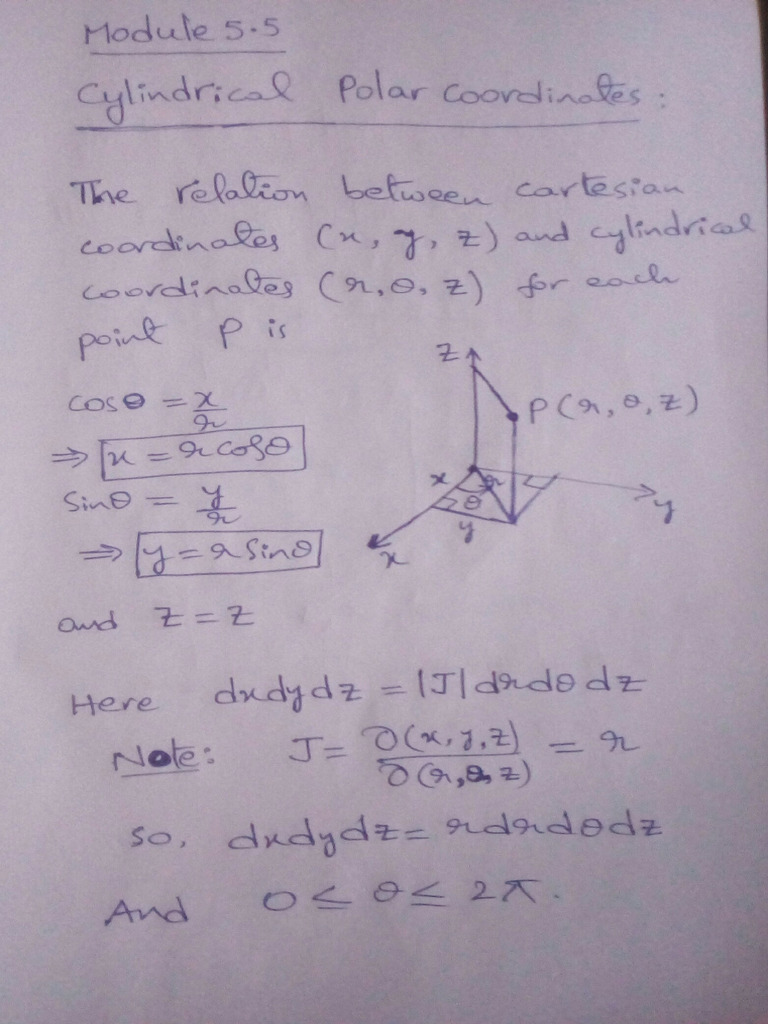 Module 5.5
Cylindrical Polar Coordinates:
The relation between cartesian
coordinates (x, y, z) and cylindrical
coordinates (r, θ, z) for each
point P is
cosθ = x/r
⇒ x = r cosθ
Sinθ = y/r
⇒ y = r Sinθ
and z = z
z
P(r, θ, z)
x
r
θ
y
y
x
Here dxdydz = |J| drdθdz
Note: J = ∂(x, y, z)/∂(r, θ, z) = r
So, dxdydz = rdrdθdz
And 0 ≤ θ ≤ 2π.